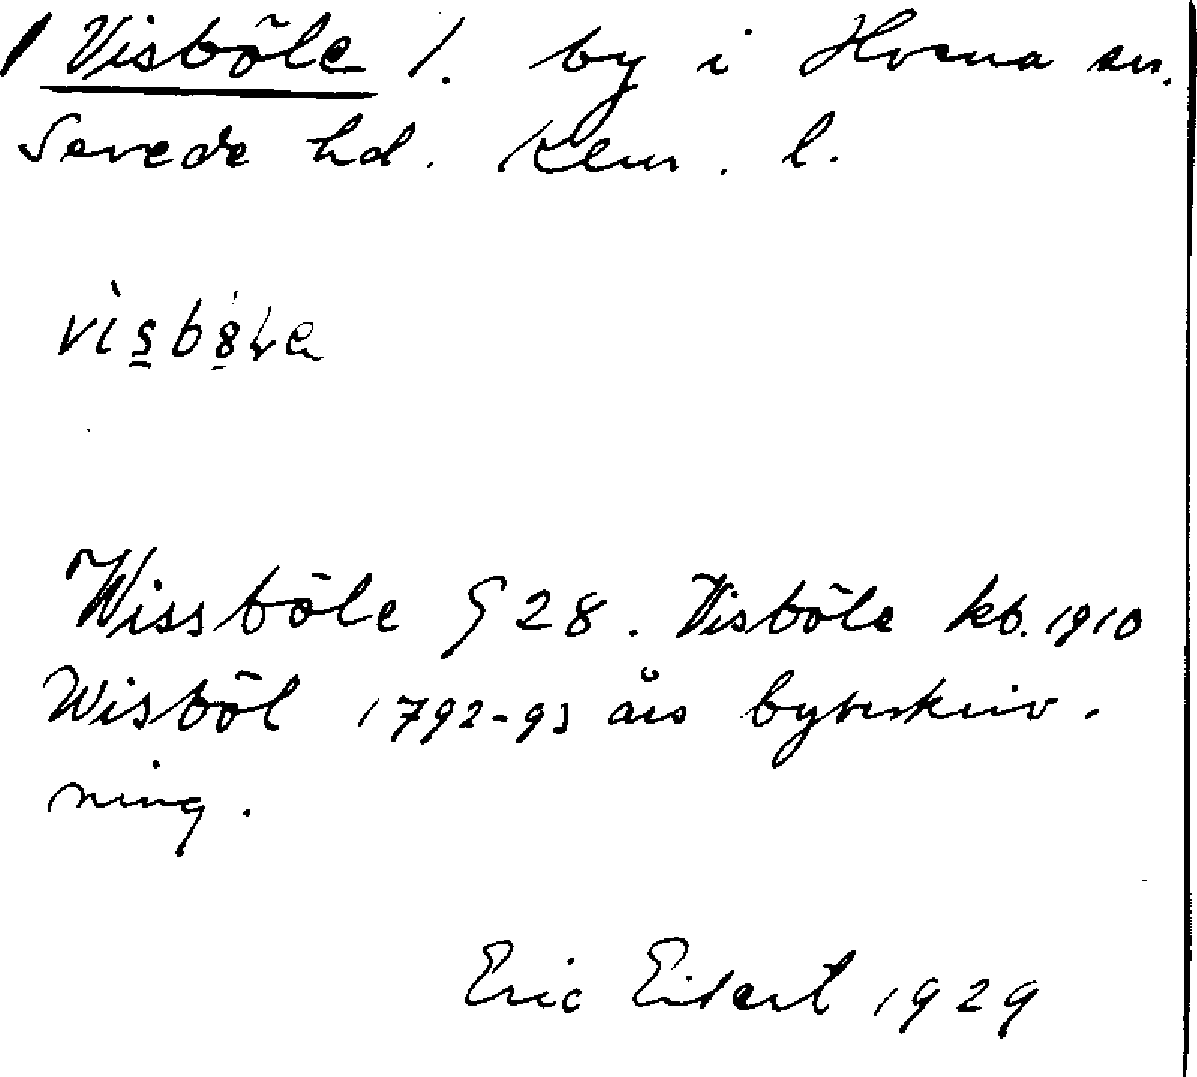 Visböle 1. by i Hvena sn.
Sevede hd. Klm. l.
Wissböle G 28. Visböle kb. 1910
Wisböl 1792-93 års bybeskriv-
ning.
Eric Eckert 1929